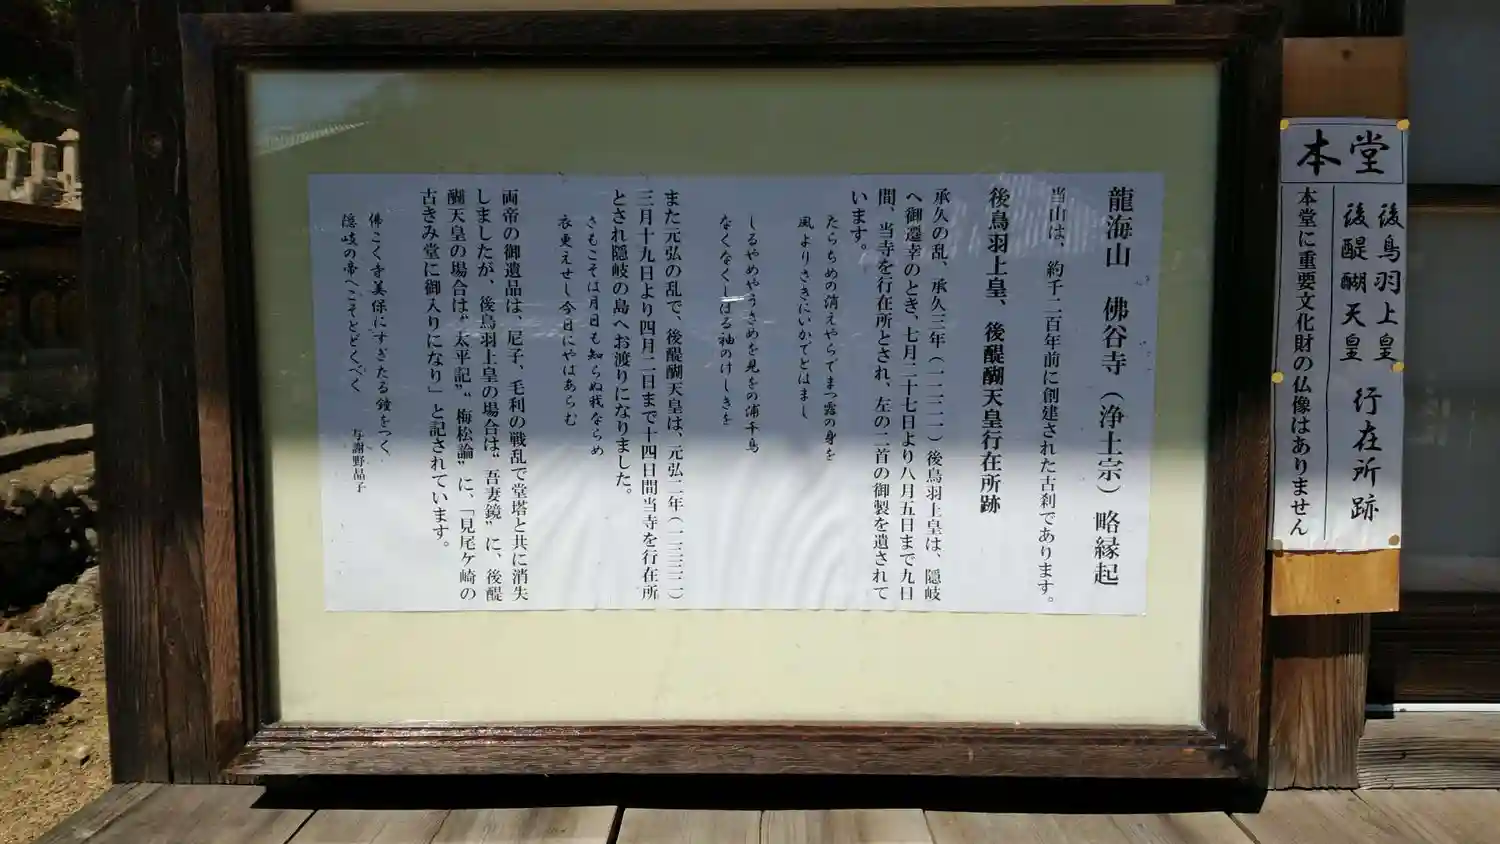 龍海山　佛谷寺（浄土宗）略縁起
当山は、約千二百年前に創建された古刹であります。
後鳥羽上皇、後醍醐天皇行在所跡
承久の乱、承久三年（一二二一）後鳥羽上皇は、隠岐
へ御遷幸のとき、七月二十七日より八月五日まで九日
間、当寺を行在所とされ、左の二首の御製を遺されて
います。
たらちめの消えやらでまつ露の身を
風よりさきにいかでとはまし
しるやめやうきめを見をの浦千鳥
なくなくしほる袖のけしきを
また元弘の乱で、後醍醐天皇は、元弘二年（一三三二）
三月十九日より四月二日まで十四日間当寺を行在所
とされ隠岐の島へお渡りになりました。
さもこそは月日も知らぬ我ならめ
衣更えせし今日にやはあらむ
両帝の御遺品は、尼子、毛利の戦乱で堂塔と共に消失
しましたが、後鳥羽上皇の場合は〝吾妻鏡〟に、後醍
醐天皇の場合は〝太平記〟〝梅松論〟に、「見尾ケ崎の
古きみ堂に御入りになり」と記されています。
佛こく寺美保にすぎたる鐘をつく
隠岐の帝へこそとどくべく
与謝野晶子
本堂
後鳥羽上皇
後醍醐天皇
行在所跡
本堂に重要文化財の仏像はありません